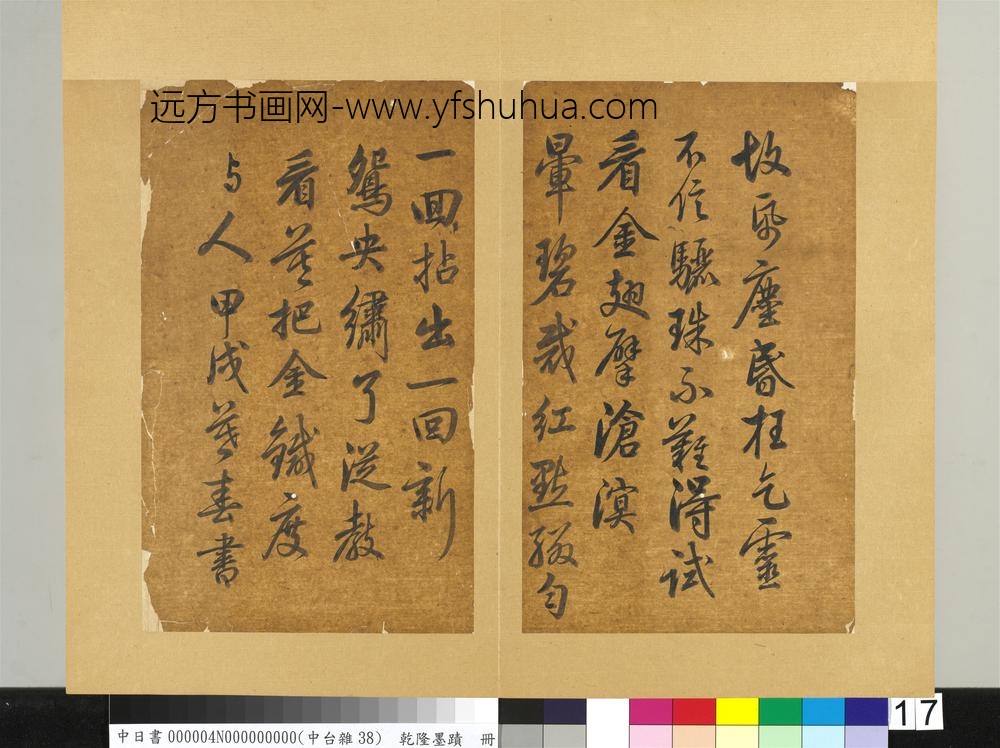 远方书画网-www.yfshuhua.com
故帋塵昏枉乞靈
不信驪珠不難得試
看金翅擘滄溟
暈碧裁紅點綴勻
一回拈出一回新
鴛央繡了從教
看莫把金鍼度
与人 甲戌暮春書
17
中日書 000004N000000000(中台雜38) 乾隆墨蹟 冊